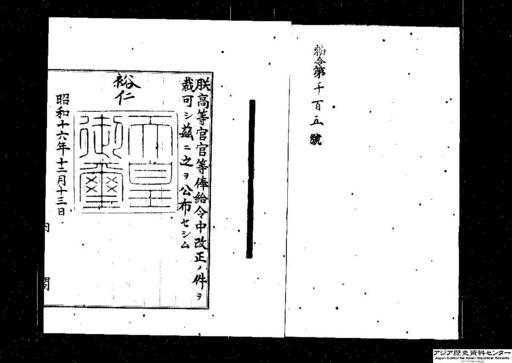 勅令第千百五號
朕高等官官等俸給令中改正ノ件ヲ
裁可シ茲ニ之ヲ公布セシム
裕仁
天皇
御璽
昭和十六年十二月十三日
内閣
アジア歴史資料センター
Japan Center for Asian Historical Records